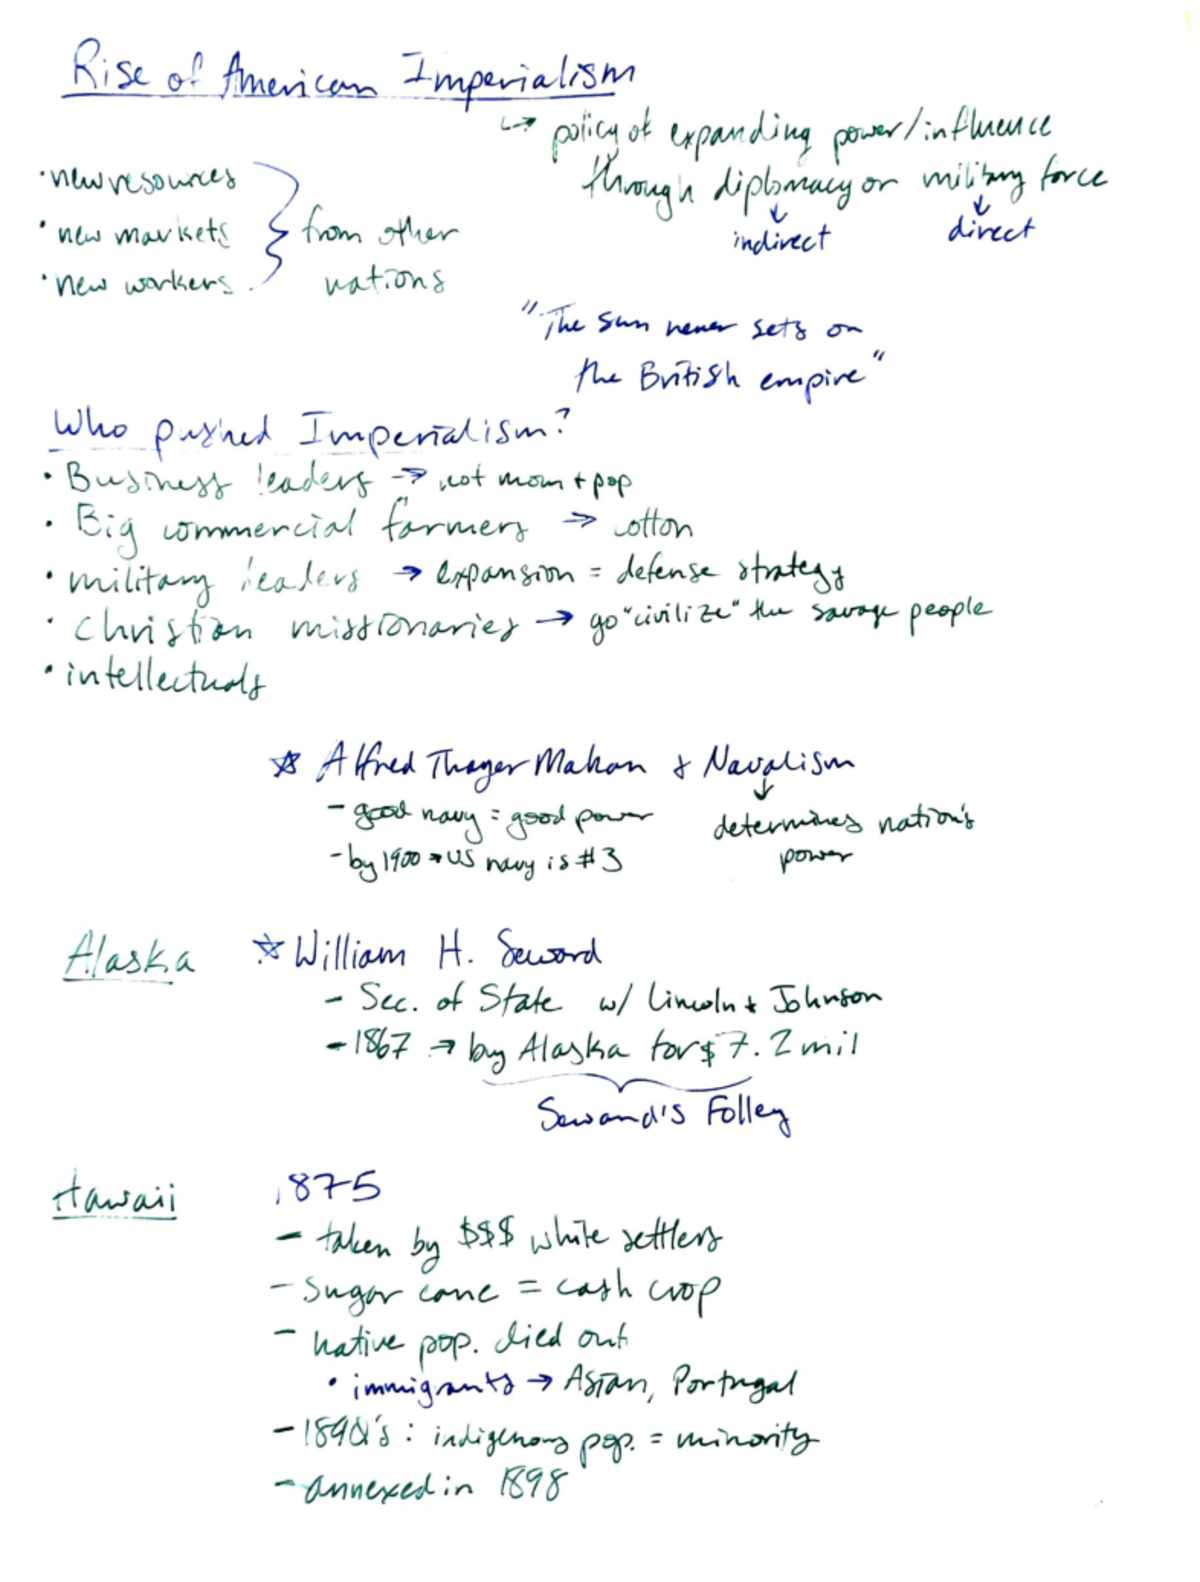 Rise of American Imperialism
↳ policy of expanding power/influence
through diplomacy or military force
indirect direct
• new resources
• new markets
• new workers
from other
nations
"The sun never sets on
the British empire"
Who pushed Imperialism?
• Business leaders → not mom + pop
• Big commercial farmers → cotton
• military leaders → expansion = defense strategy
• Christian missionaries → go "civilize" the savage people
• intellectuals
☆ Alfred Thayer Mahan & Navalism
- good navy = good power
- by 1900 → US navy is #3
determines nation's
power
Alaska ☆ William H. Seward
- Sec. of State w/ Lincoln + Johnson
- 1867 → buy Alaska for $7.2 mil
Seward's Folley
Hawaii 1875
- taken by $$$ white settlers
- sugar cane = cash crop
- native pop. died out
• immigrants → Asian, Portugal
- 1890's: indigenous pop. = minority
- annexed in 1898